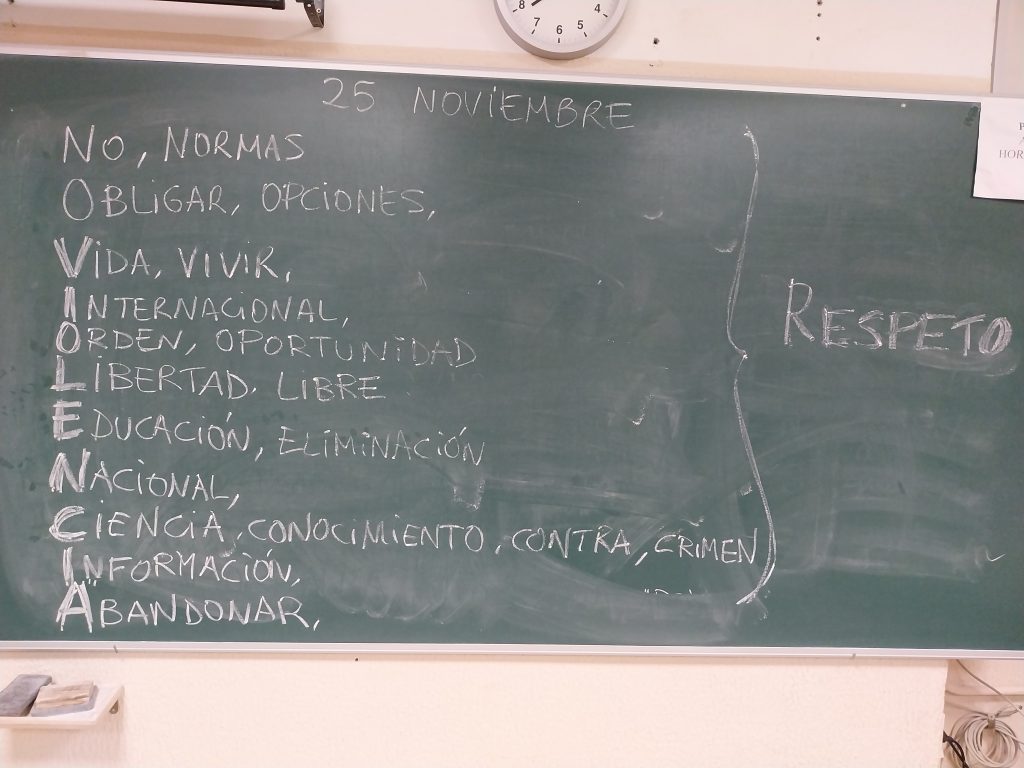 8 7 6 5 4
25 NOVIEMBRE
NO, NORMAS
OBLIGAR, OPCIONES,
VIDA, VIVIR,
INTERNACIONAL,
ORDEN, OPORTUNIDAD
LIBERTAD, LIBRE
EDUCACIÓN, ELIMINACIÓN
NACIONAL,
CIENCIA, CONOCIMIENTO, CONTRA, CRIMEN
INFORMACIÓN,
ABANDONAR,
RESPETO
HOR